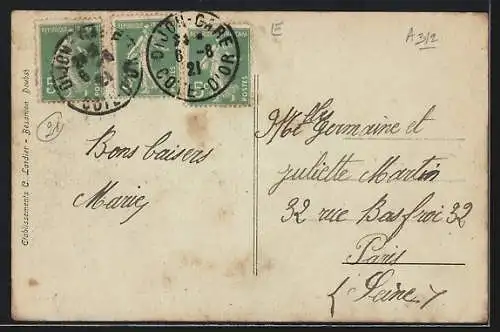 E
A 3/2
DIJON-GARE
6 -8
21
COTE D'OR
DIJON-GARE
6 -8
21
COTE D'OR
5c POSTES
Etablissements C. Lardier - Besançon (Doubs)
Bons baisers
Marie
Melles Germaine et
juliette Martin
32 rue Basfroi 32
Paris
(Seine)